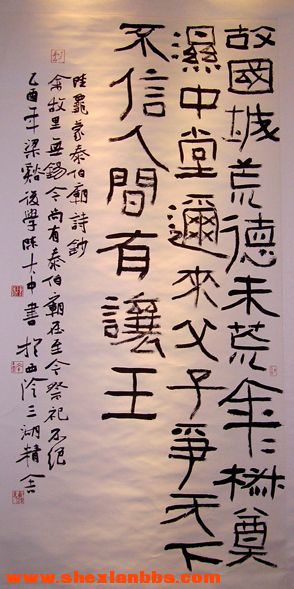 故國城荒德未荒年々椒奠
濕中堂邇來父子爭天下
不信人間有讓王
陸龜蒙泰伯廟詩鈔
故里無錫今尚有泰伯廟存至今祭祀不絕
乙酉年梁谿後學陈大中書於西泠三湖精舍
www.shexianbbs.com